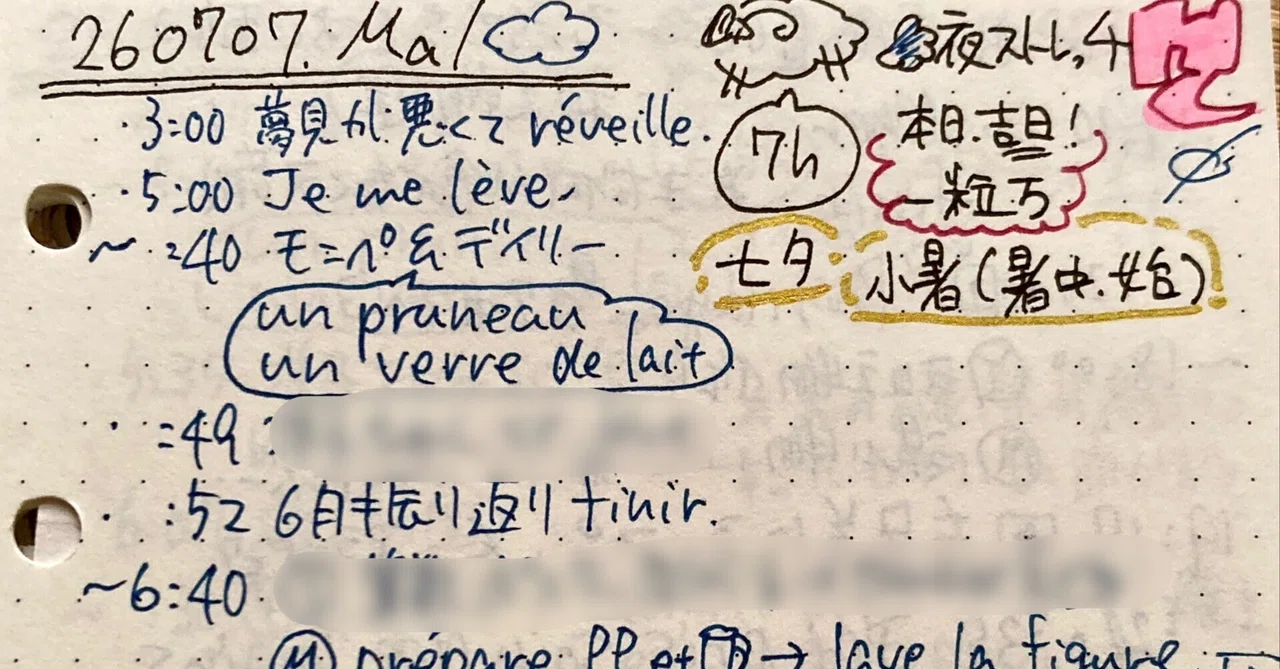 260707. Mal
夜ストレッチ
・3:00 夢見が悪くて réveille.
7h
本日.吉日!
一粒万
・5:00 Je me lève.
〜 :40 モニペ&デイリー
七夕
小暑(暑中.始)
un pruneau
un verre de lait
:49:
:52 6月振り返り finir.
〜6:40
M prépare PP et → lave la figure